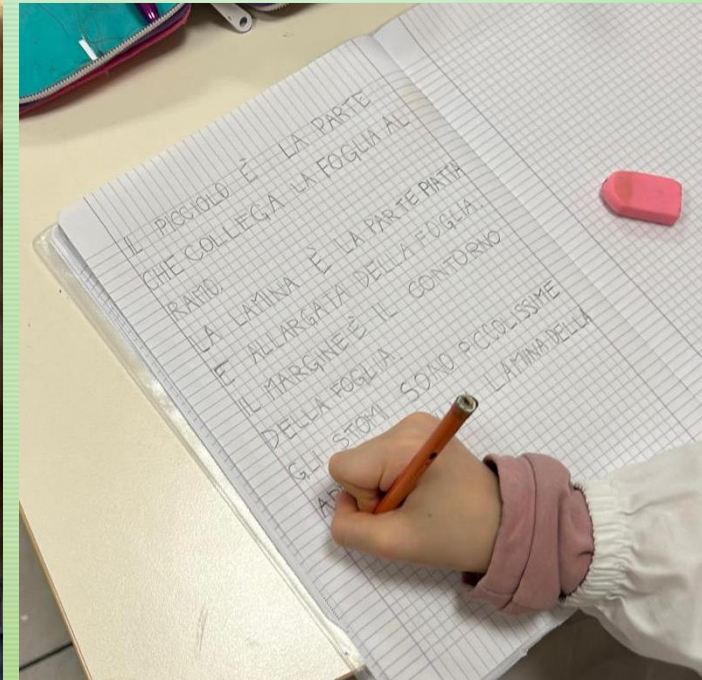 IL PICCIOLO È LA PARTE
CHE COLLEGA LA FOGLIA AL
RAMO.
LA LAMINA È LA PARTE PIATTA
E ALLARGATA DELLA FOGLIA.
IL MARGINE È IL CONTORNO
DELLA FOGLIA.
GLI STOMI SONO PICCOLISSIME
LAMINA DELLA